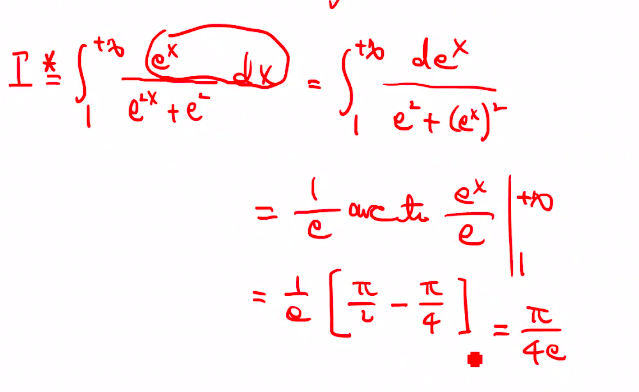 I * = ∫₁^{+∞} e^x / (e^{2x} + e^2) dx = ∫₁^{+∞} de^x / (e^2 + (e^x)^2)
= 1/e arctan e^x/e |₁^{+∞}
= 1/e [π/2 − π/4] = π/4e